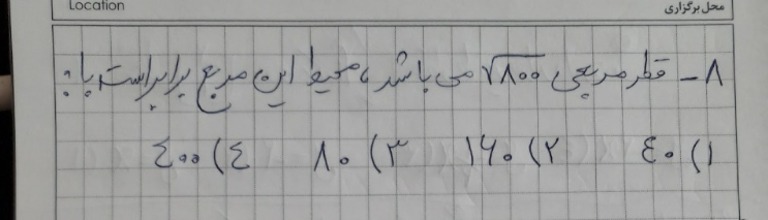 Location محل برگزاری
۸- قطر مربعی √۸۰۰ می باشد، محیط این مربع برابراست با:
۱) ٤۰ ۲) ۱۶۰ ۳) ۸۰ ٤) ٤۰۰